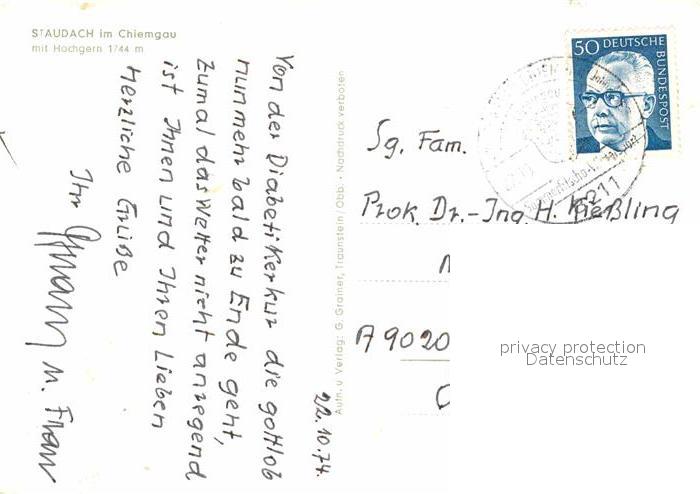 STAUDACH im Chiemgau
mit Hochgern 1744 m
22.10.74.
Von der Diabetikerkur die gottlob
nunmehr bald zu Ende geht,
zumal das Wetter nicht anregend
ist Ihnen und Ihren Lieben
herzliche Grüße
Ihr
u. Frau
Aufn. u. Verlag: G. Grainer, Traunstein/Obb. · Nachdruck verboten
50 DEUTSCHE
BUNDESPOST
8211
Sg. Fam.
Prok. Dr.-Ing. H. Kießling
A 9020
privacy protection
Datenschutz